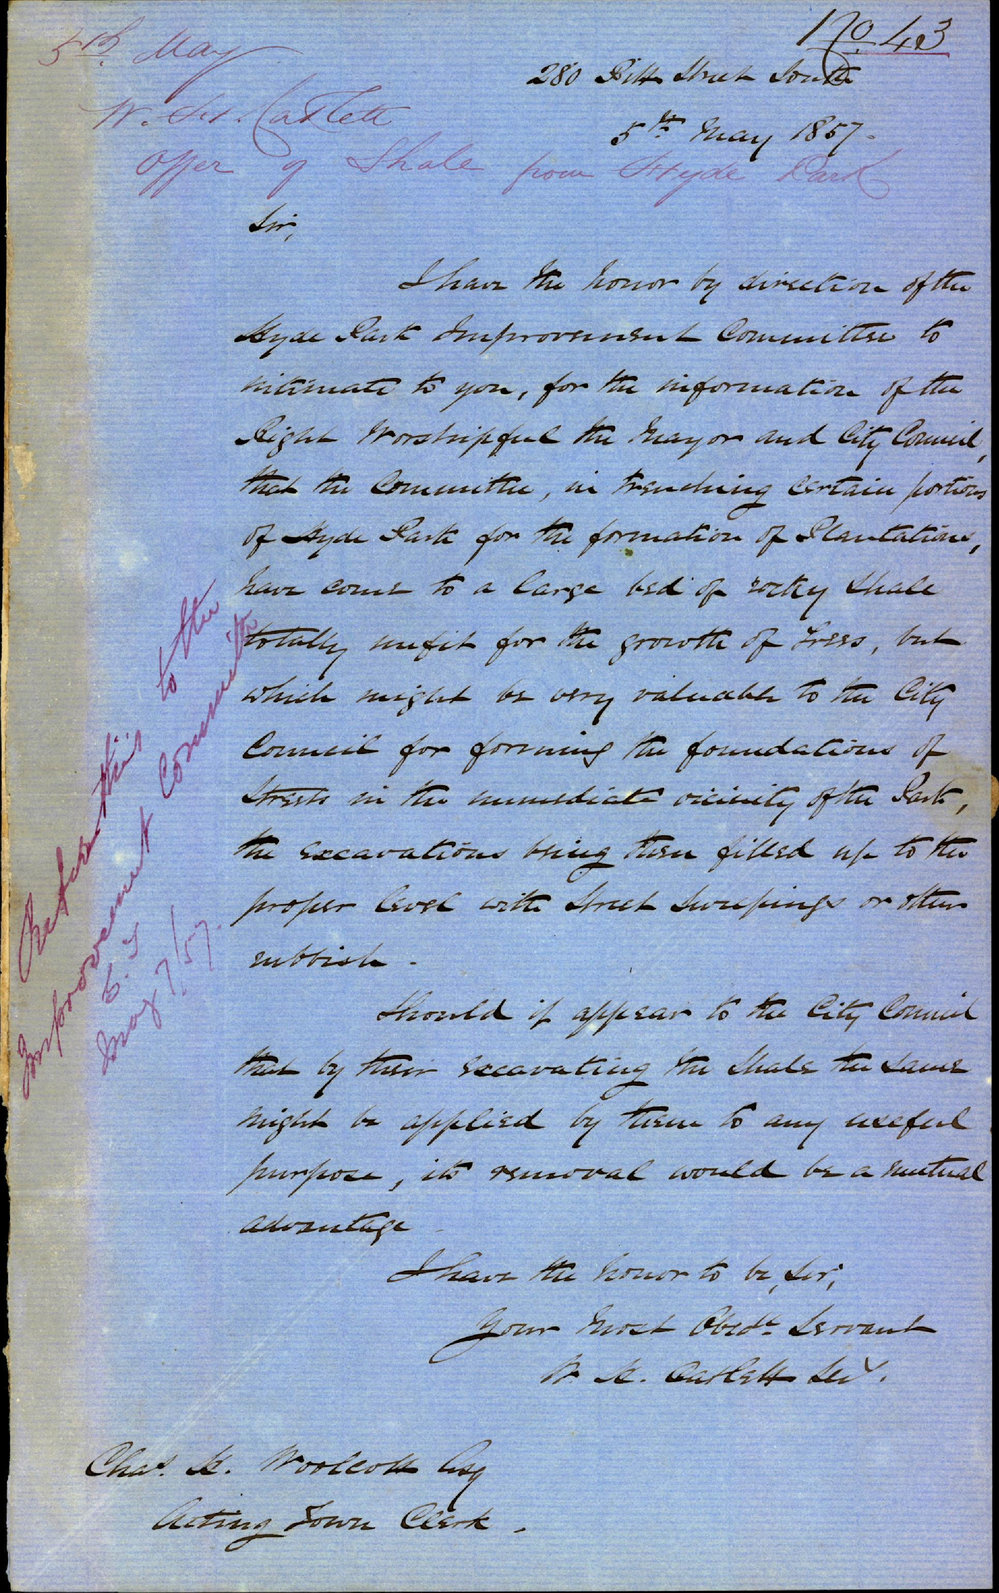 No 43
5th May
280 Pitt Street South
W. H. Catlett
5th May 1857.
Offer of Shale from Hyde Park
Sir,
I have the honor by direction of the
Hyde Park Improvement Committee to
intimate to you, for the information of the
Right Worshipful the Mayor and City Council,
that the Committee, in trenching certain portions
of Hyde Park for the formation of Plantations,
have come to a large bed of rocky Shale
totally unfit for the growth of Trees, but
which might be very valuable to the City
Council for forming the foundations of
Streets in the immediate vicinity of the Park,
the excavations being then filled up to the
proper level with Street Sweepings or other
rubbish.
Should it appear to the City Council
that by their excavating the Shale the same
might be applied by them to any useful
purpose, its removal would be a mutual
advantage
I have the honor to be, Sir,
Your Most Obedt. Servant
W H. Catlett Secy.
Chas. H. Woolcott Esq
Acting Town Clerk.
Refer this to the
Improvement Committee
May 7/57.